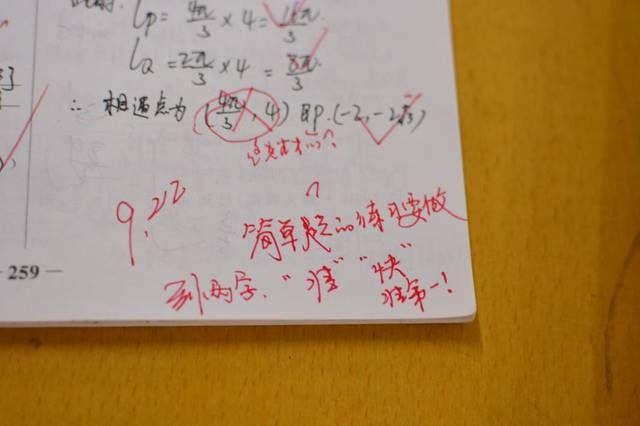 此时. l_P = 4π/3 × 4 = 16π/3
l_Q = 2π/3 × 4 = 8π/3
∴ 相遇点为 (4π/3, 4) 即P.(-2, -2√3)
9.22
简单题的练习要做
到两字. "准" "快"
准第一!
259